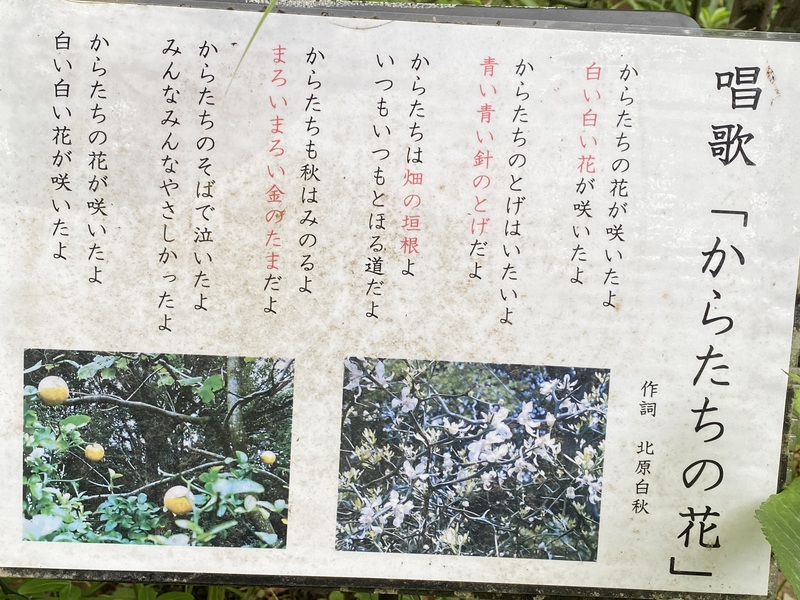 唱歌 「からたちの花」
作詞 北原白秋
からたちの花が咲いたよ
白い白い花が咲いたよ
からたちのとげはいたいよ
青い青い針のとげだよ
からたちは畑の垣根よ
いつもいつもとほる道だよ
からたちも秋はみのるよ
まろいまろい金のたまだよ
からたちのそばで泣いたよ
みんなみんなやさしかったよ
からたちの花が咲いたよ
白い白い花が咲いたよ